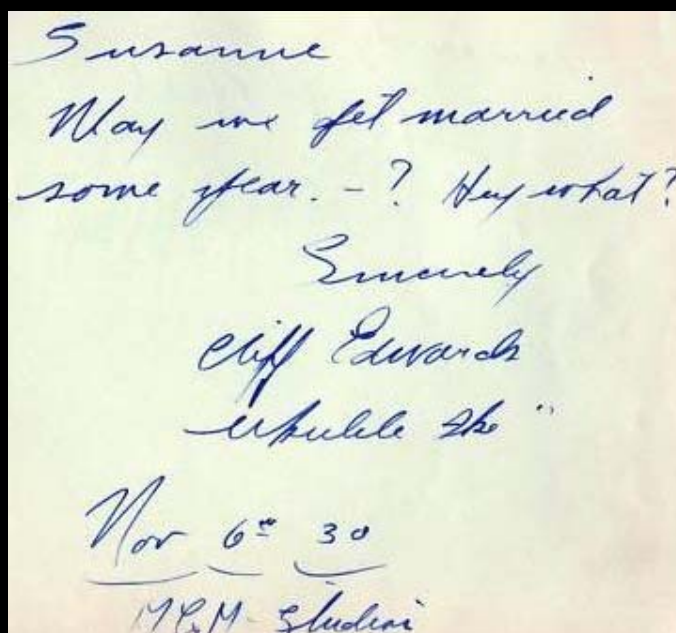 Susanne
May we get married
some year. - ? Hey what?
Sincerely
Cliff Edwards
Ukulele Ike "
Nov 6th 30
MGM - Studios